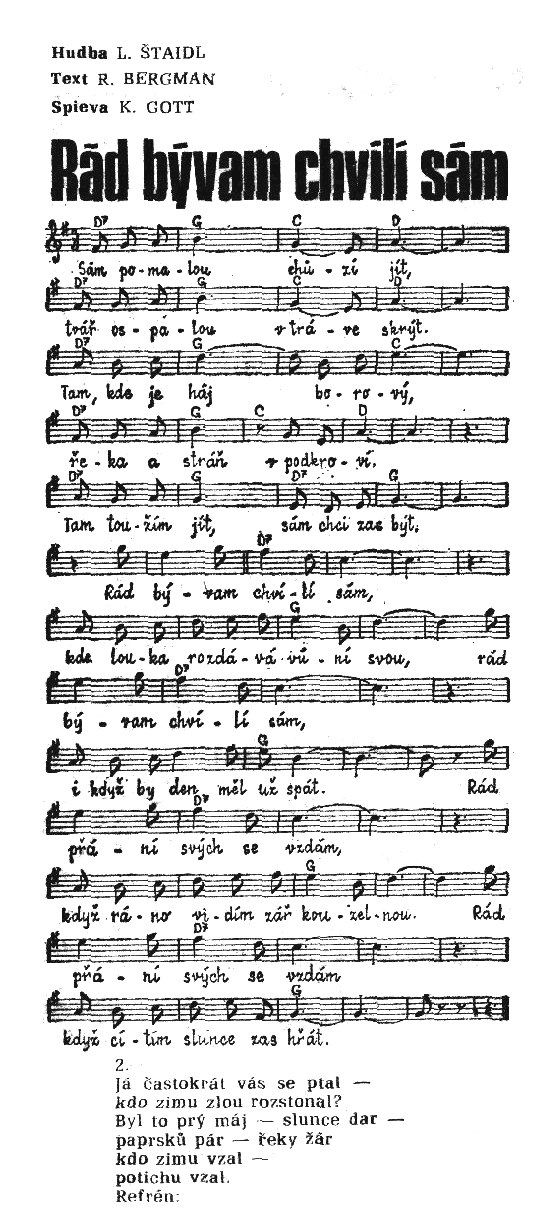 Hudba L. ŠTAIDL
Text R. BERGMAN
Spieva K. GOTT
Rád bývam chvílí sám
D⁷ G C D
Sám po-ma-lou chů-zí jít,
D⁷ G C D
tvář os-pa-lou v trá-ve skrýt.
D⁷ G C
Tam, kde je háj bo-ro-vý,
D⁷ G C D
ře-ka a stráň v podkro-ví.
D⁷ G D⁷ G
Tam tou-žím jít, sám chci zas být.
D⁷
Rád bý-vam chví-lí sám,
G
kde lou-ka rozdá-vá vů-ní svou, rád
D⁷
bý-vam chví-lí sám,
G
i když by den měl už spát. Rád
D⁷
přá-ní svých se vzdám,
G
když rá-no vi-dím zář kou-zel-nou. Rád
D⁷
přá-ní svých se vzdám
G
když cí-tím slunce zas hřát.
2.
Já častokrát vás se ptal —
kdo zimu zlou rozstonal?
Byl to prý máj — slunce dar —
paprsků pár — řeky žár
kdo zimu vzal —
potichu vzal.
Refrén: